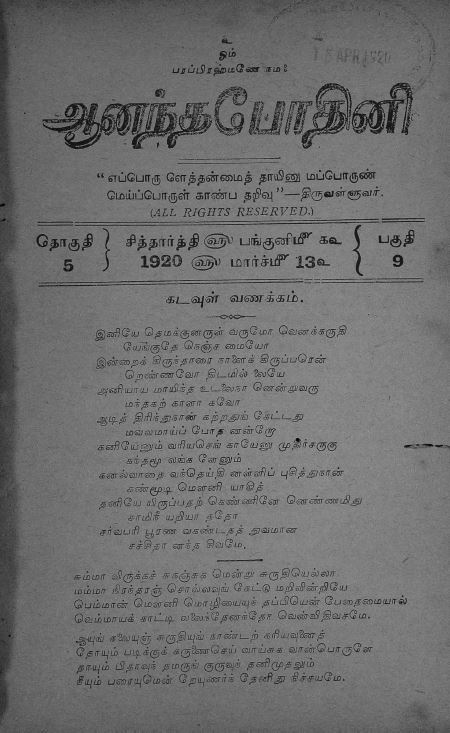 உ
ஓம்
பரப்பிரஹ்மணே நம:
13 APR 1920
ஆனந்தபோதினி
"எப்பொரு ளெத்தன்மைத் தாயினு மப்பொருண்
மெய்ப்பொருள் காண்ப தறிவு"—திருவள்ளுவர்.
(ALL RIGHTS RESERVED.)
தொகுதி 5
சித்தார்த்தி ௵ பங்குனி௴ க௨
1920 ௵ மார்ச்சு௴ 13௨
பகுதி 9
கடவுள் வணக்கம்.
இனியே தெமக்குனருள் வருமோ வெனக்கருதி
யேங்குதே நெஞ்ச மையோ
இன்றைக் கிருந்தாரை நாளைக் கிருப்பரென்
றெண்ணவோ திடமில் லையே
அனியாய மாயிந்த உடலைநா னென்றுவரு
மந்தகற் காளா கவோ
ஆடித் திரிந்துநான் கற்றதுங் கேட்டது
மவலமாய்ப் போத னன்றோ
கனியேனும் வறியசெங் காயேனு முதிர்சருகு
கந்தமூ லங்க ளேனும்
கனல்வாதை வந்தெய்தி னள்ளிப் புசித்துநான்
கண்மூடி மௌனி யாகித்
தனியே யிருப்பதற் கெண்ணினே னெண்ணமிது
சாமிநீ யறியா ததோ
சர்வபரி பூரண வகண்டதத் துவமான
சச்சிதா னந்த சிவமே.
சும்மா விருக்கச் சுகஞ்சுக மென்று சுருதியெல்லா
மம்மா நிரந்தரஞ் சொல்லவுங் கேட்டு மறிவின்றியே
பெம்மான் மௌனி மொழியையுந் தப்பியென் பேதைமையால்
வெம்மாயக் காட்டி லலைந்தேனந்தோ வென்விதிவசமே.
ஆயுங் கலையுஞ் சுருதியுங் காண்டற் கரியவுனைத்
தோயும் படிக்குக் கருணைசெய் வாய்சுக வான்பொருளே
தாயும் பிதாவுந் தமருங் குருவுந் தனிமுதலும்
நீயும் பரையுமென் றேயுணர்ந் தேனிது நிச்சயமே.